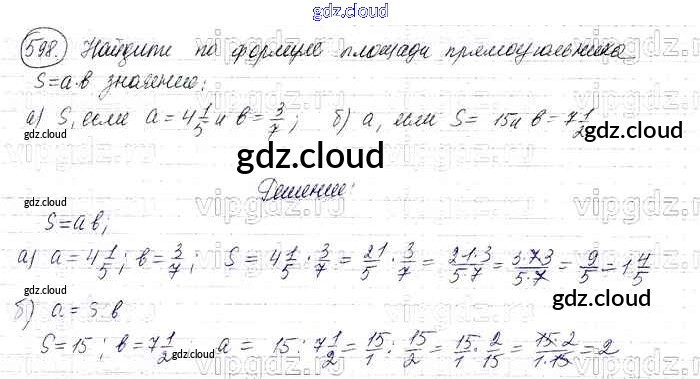 gdz.cloud
598. Найдите по формуле площади прямоугольника
S=a·в значение:
а) S, если a = 4 1/5 и в = 3/7; б) a, если S = 15 и в = 7 1/2
gdz.cloud gdz.cloud
gdz.cloud
gdz.cloud Решение: gdz.cloud
S=aв;
а) a = 4 1/5; в = 3/7; S = 4 1/5 · 3/7 = 21/5 · 3/7 = 21·3/5·7 = 3·7·3/5·7 = 9/5 = 1 4/5
gdz.cloud
б) a = S:в
S=15; в = 7 1/2 a = 15 : 7 1/2 = 15/1 : 15/2 = 15/1 · 2/15 = 15·2/1·15 = 2
gdz.cloud gdz.cloud